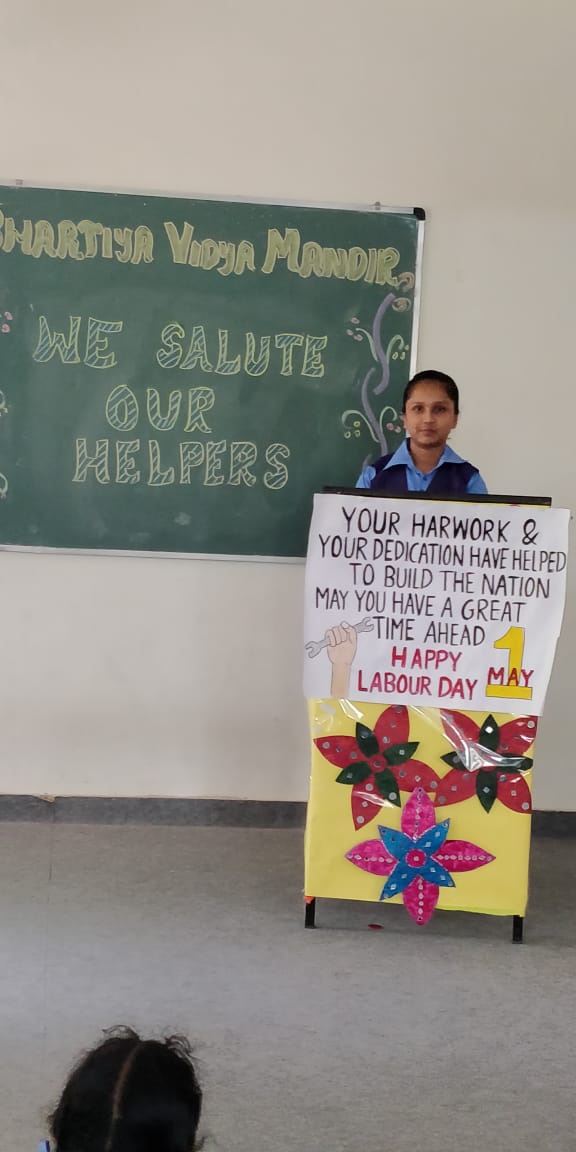 BHARTIYA VIDYA MANDIR
WE SALUTE
OUR
HELPERS
YOUR HARWORK &
YOUR DEDICATION HAVE HELPED
TO BUILD THE NATION
MAY YOU HAVE A GREAT
TIME AHEAD
HAPPY
LABOUR DAY
1
MAY